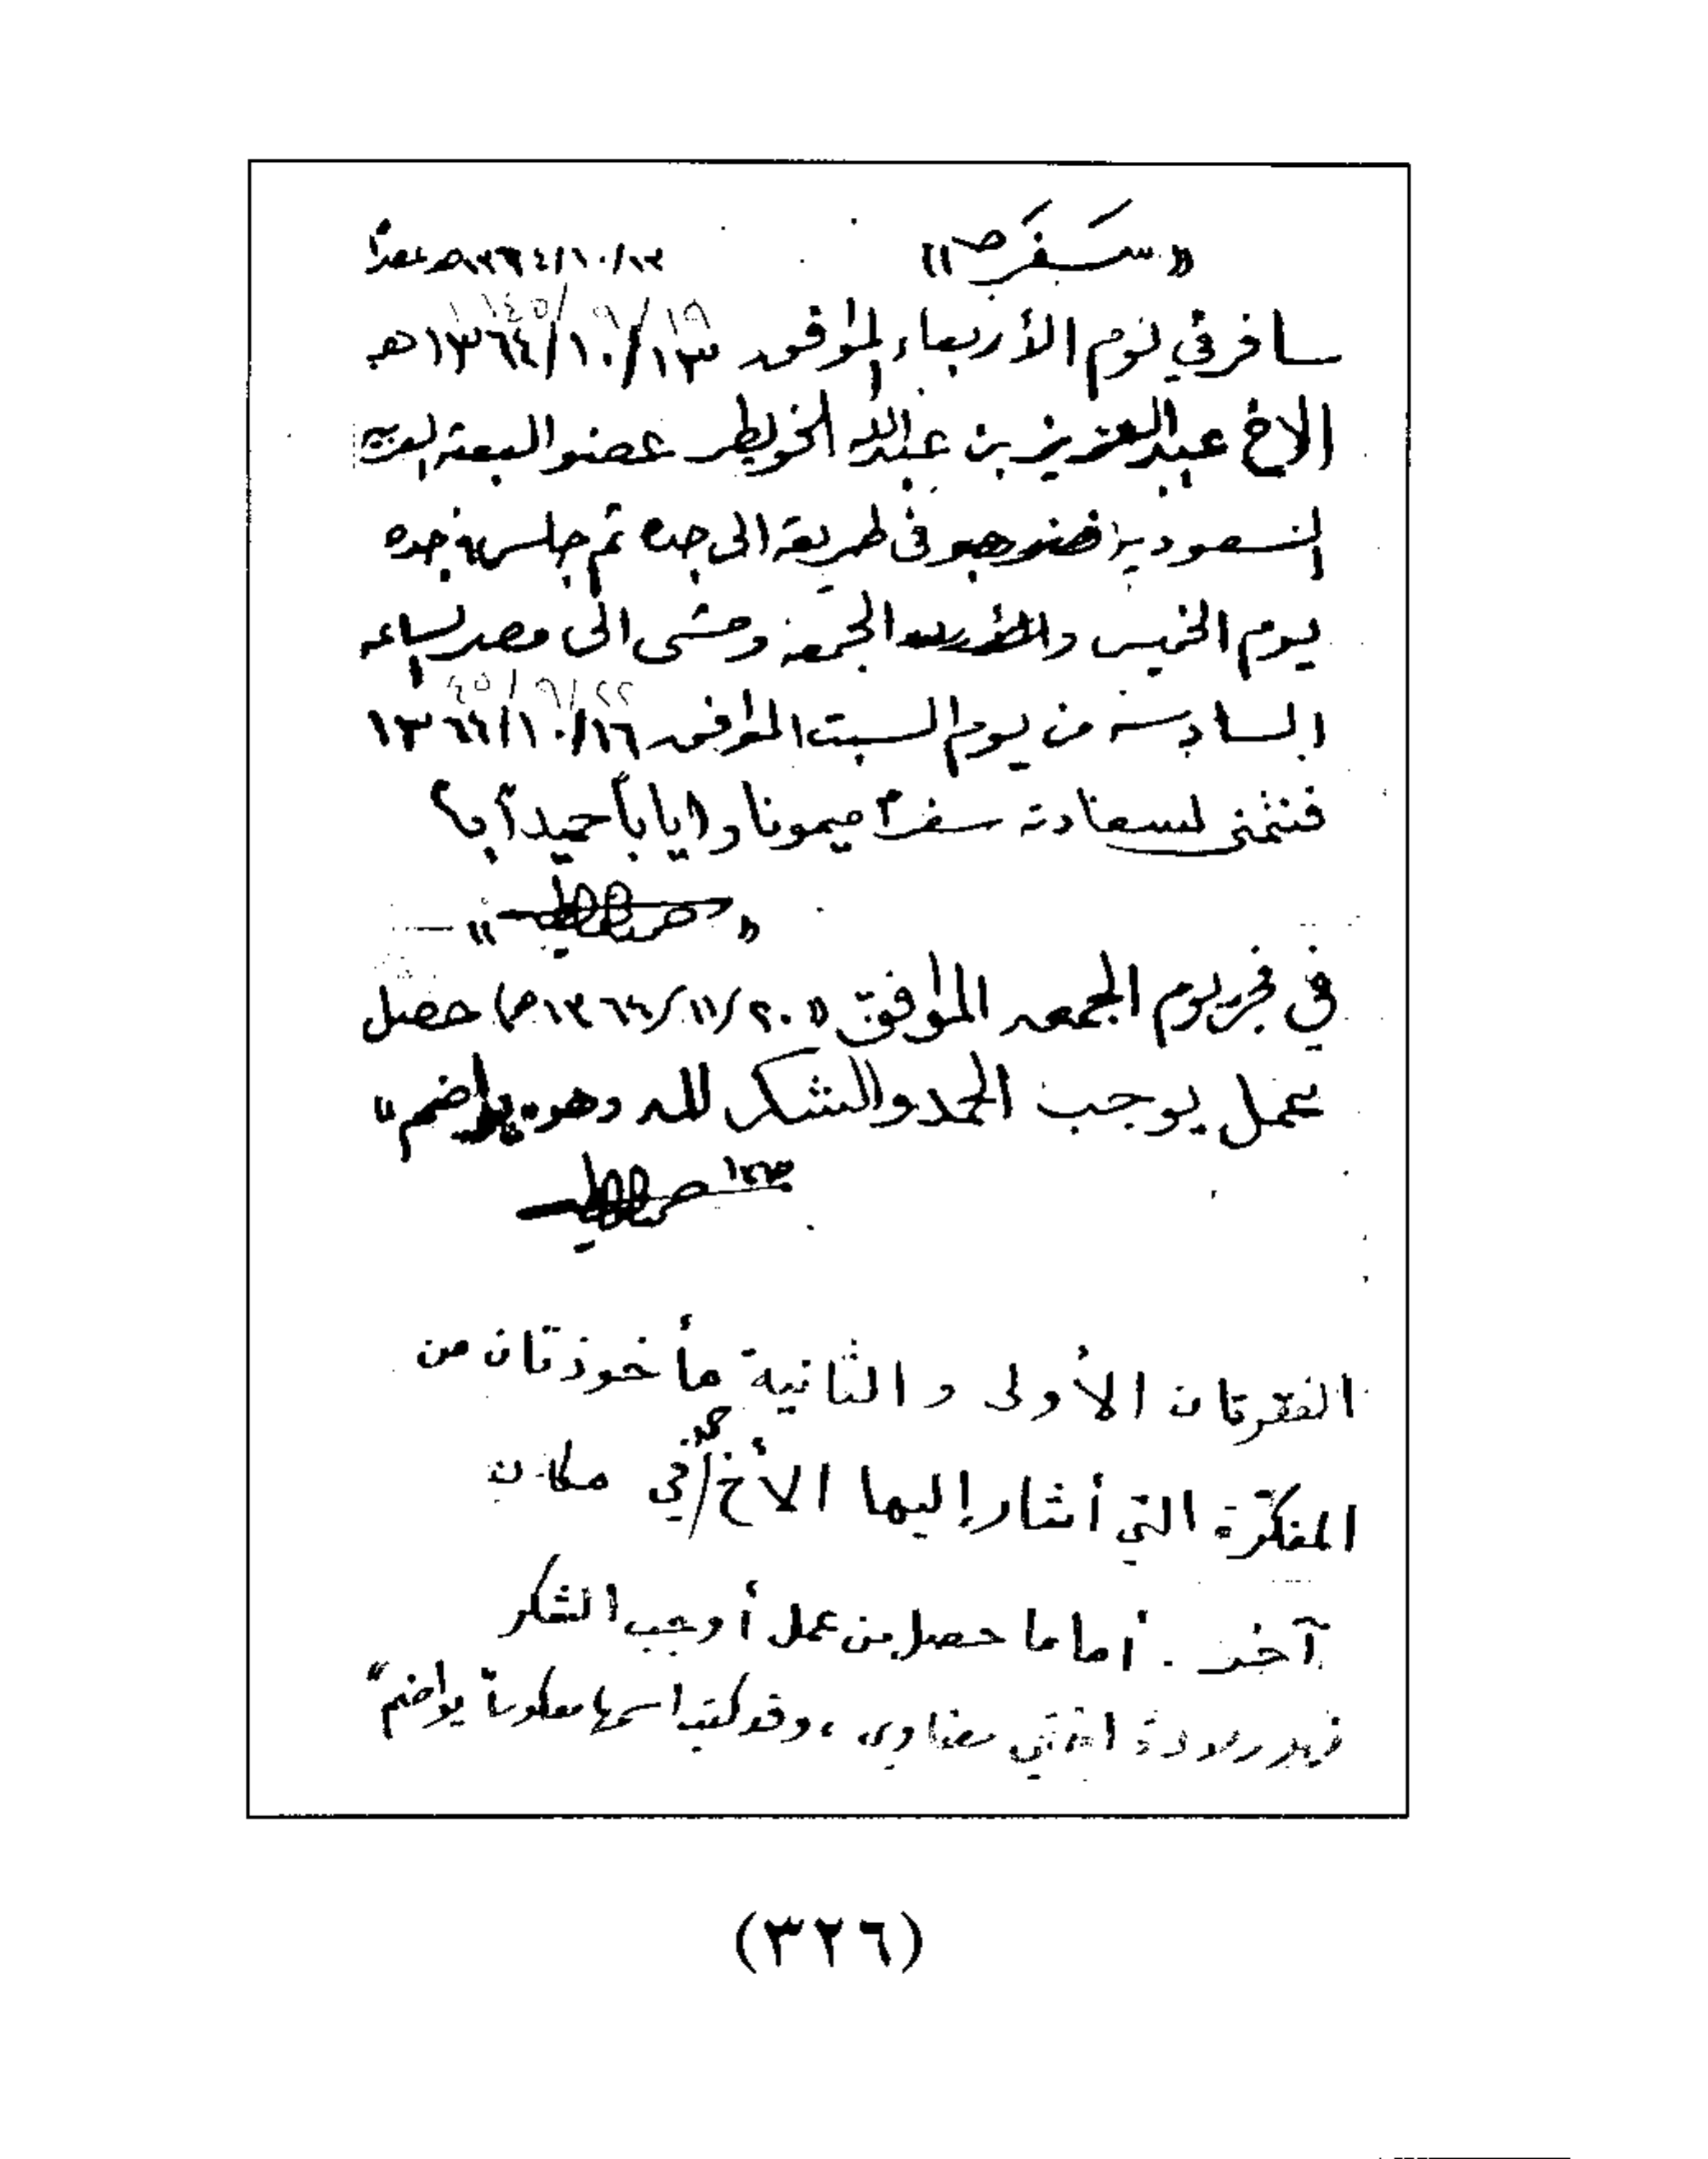 «سَفَر» ١٣/١٠/١٣٦٤هـ عصراً
١٩/٩/٤٥
سافر في يوم الأربعاء الموافق ١٣/١٠/١٣٦٤هـ
الاخ عبد العزيز بن عبدالله الخويطر عضو البعثة العربية
السعودية في طريقه الى جده ثم جلس في جده
يوم الخميس والجمعه ومشى الى مصر لساعه
٢٢/٩/٤٥
السادسة من يوم السبت الموافق ١٦/١٠/١٣٦٤
فنتمنى لسعادته سفراً ميمونا واياباً حميداً
في فجر يوم الجمعه الموافق (٢٠/١١/١٣٦٤هـ) حصل
عمل يوجب الحمد والشكر لله وهو «يواضم»
الفقرتان الأولى والثانية مأخوذتان من
المفكرة التي أشار إليها الأخ / في مكان
آخر. أما ما حصل من عمل أوجب الشكر
فهو ولادة اختي مضاوي، وقد كتب اسمها معكوساً "يواضم"
(٣٢٦)